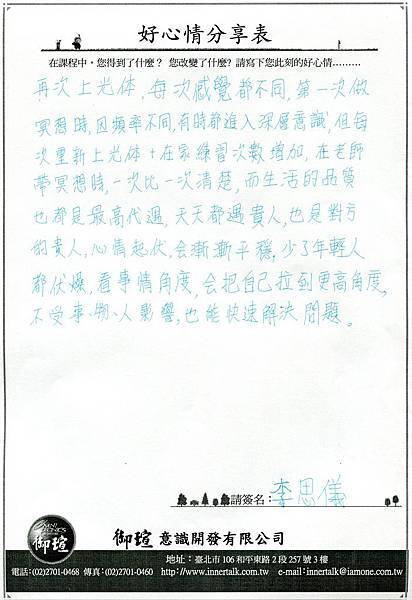 好心情分享表
在課程中，您得到了什麼？ 您改變了什麼? 請寫下您此刻的好心情………
再次上光体，每次感覺都不同，第一次做
冥想時，因頻率不同，有時都進入深層意識，但每
次重新上光体+在家練習次數增加，在老師
帶冥想時，一次比一次清楚，而生活的品質
也都是最高代過，天天都遇貴人，也是對方
的貴人，心情起伏，会漸漸平穩，少了年輕人
都伏燥，看事情角度，会把自己拉到更高角度，
不受事、物、人影響，也能快速解決問題。
請簽名：李思儀
御瑄
御瑄 意識開發有限公司
地址：臺北市106和平東路2段257號3樓
電話：(02)2701-0468 傳真：(02)2701-0460 http://www.innertalk.com.tw e-mail：innertalk@iamone.com.tw